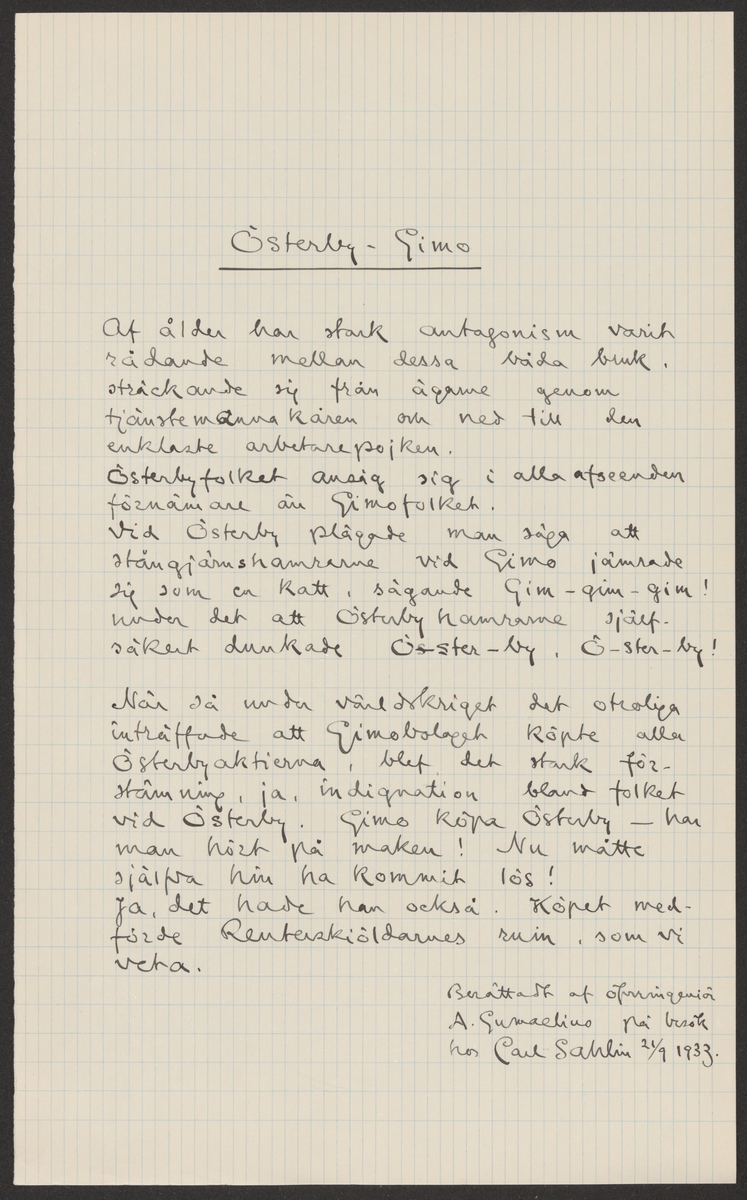 Österby - Gimo
Af ålder har stark antagonism varit
rådande mellan dessa båda bruk,
sträckande sig från ägarne genom
tjänstemannakåren om ned till den
enklaste arbetarepojken.
Österbyfolket ansåg sig i alla afseenden
förnämare än Gimofolket.
Vid Österby plägade man säga att
stångjärnshamrarne vid Gimo jämrade
sig som en katt, sägande Gim-gim-gim!
under det att Österbyhamrarne själf-
säkert dunkade Ös-ster-by, Ö-ster-by!
När så under världskriget det otroliga
inträffade att Gimobolaget köpte alla
Österbyaktierna, blef det stark för-
stämning, ja, indignation bland folket
vid Österby. Gimo köpa Österby — har
man hört på maken! Nu måtte
själfva hin ha kommit lös!
Ja, det hade han också. Köpet med-
förde Reuterskiöldarnes ruin, som vi
veta.
Berättadt af öfveringeniör
A. Gumaelius på besök
hos Carl Sahlin 21/9 1933.